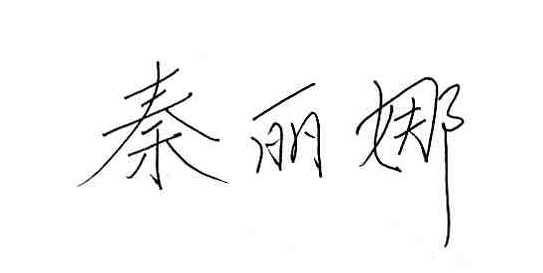 秦丽娜